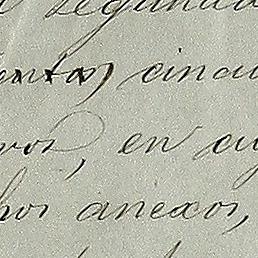 segunda
entas, cincu
ros, en cu
hos anexos,